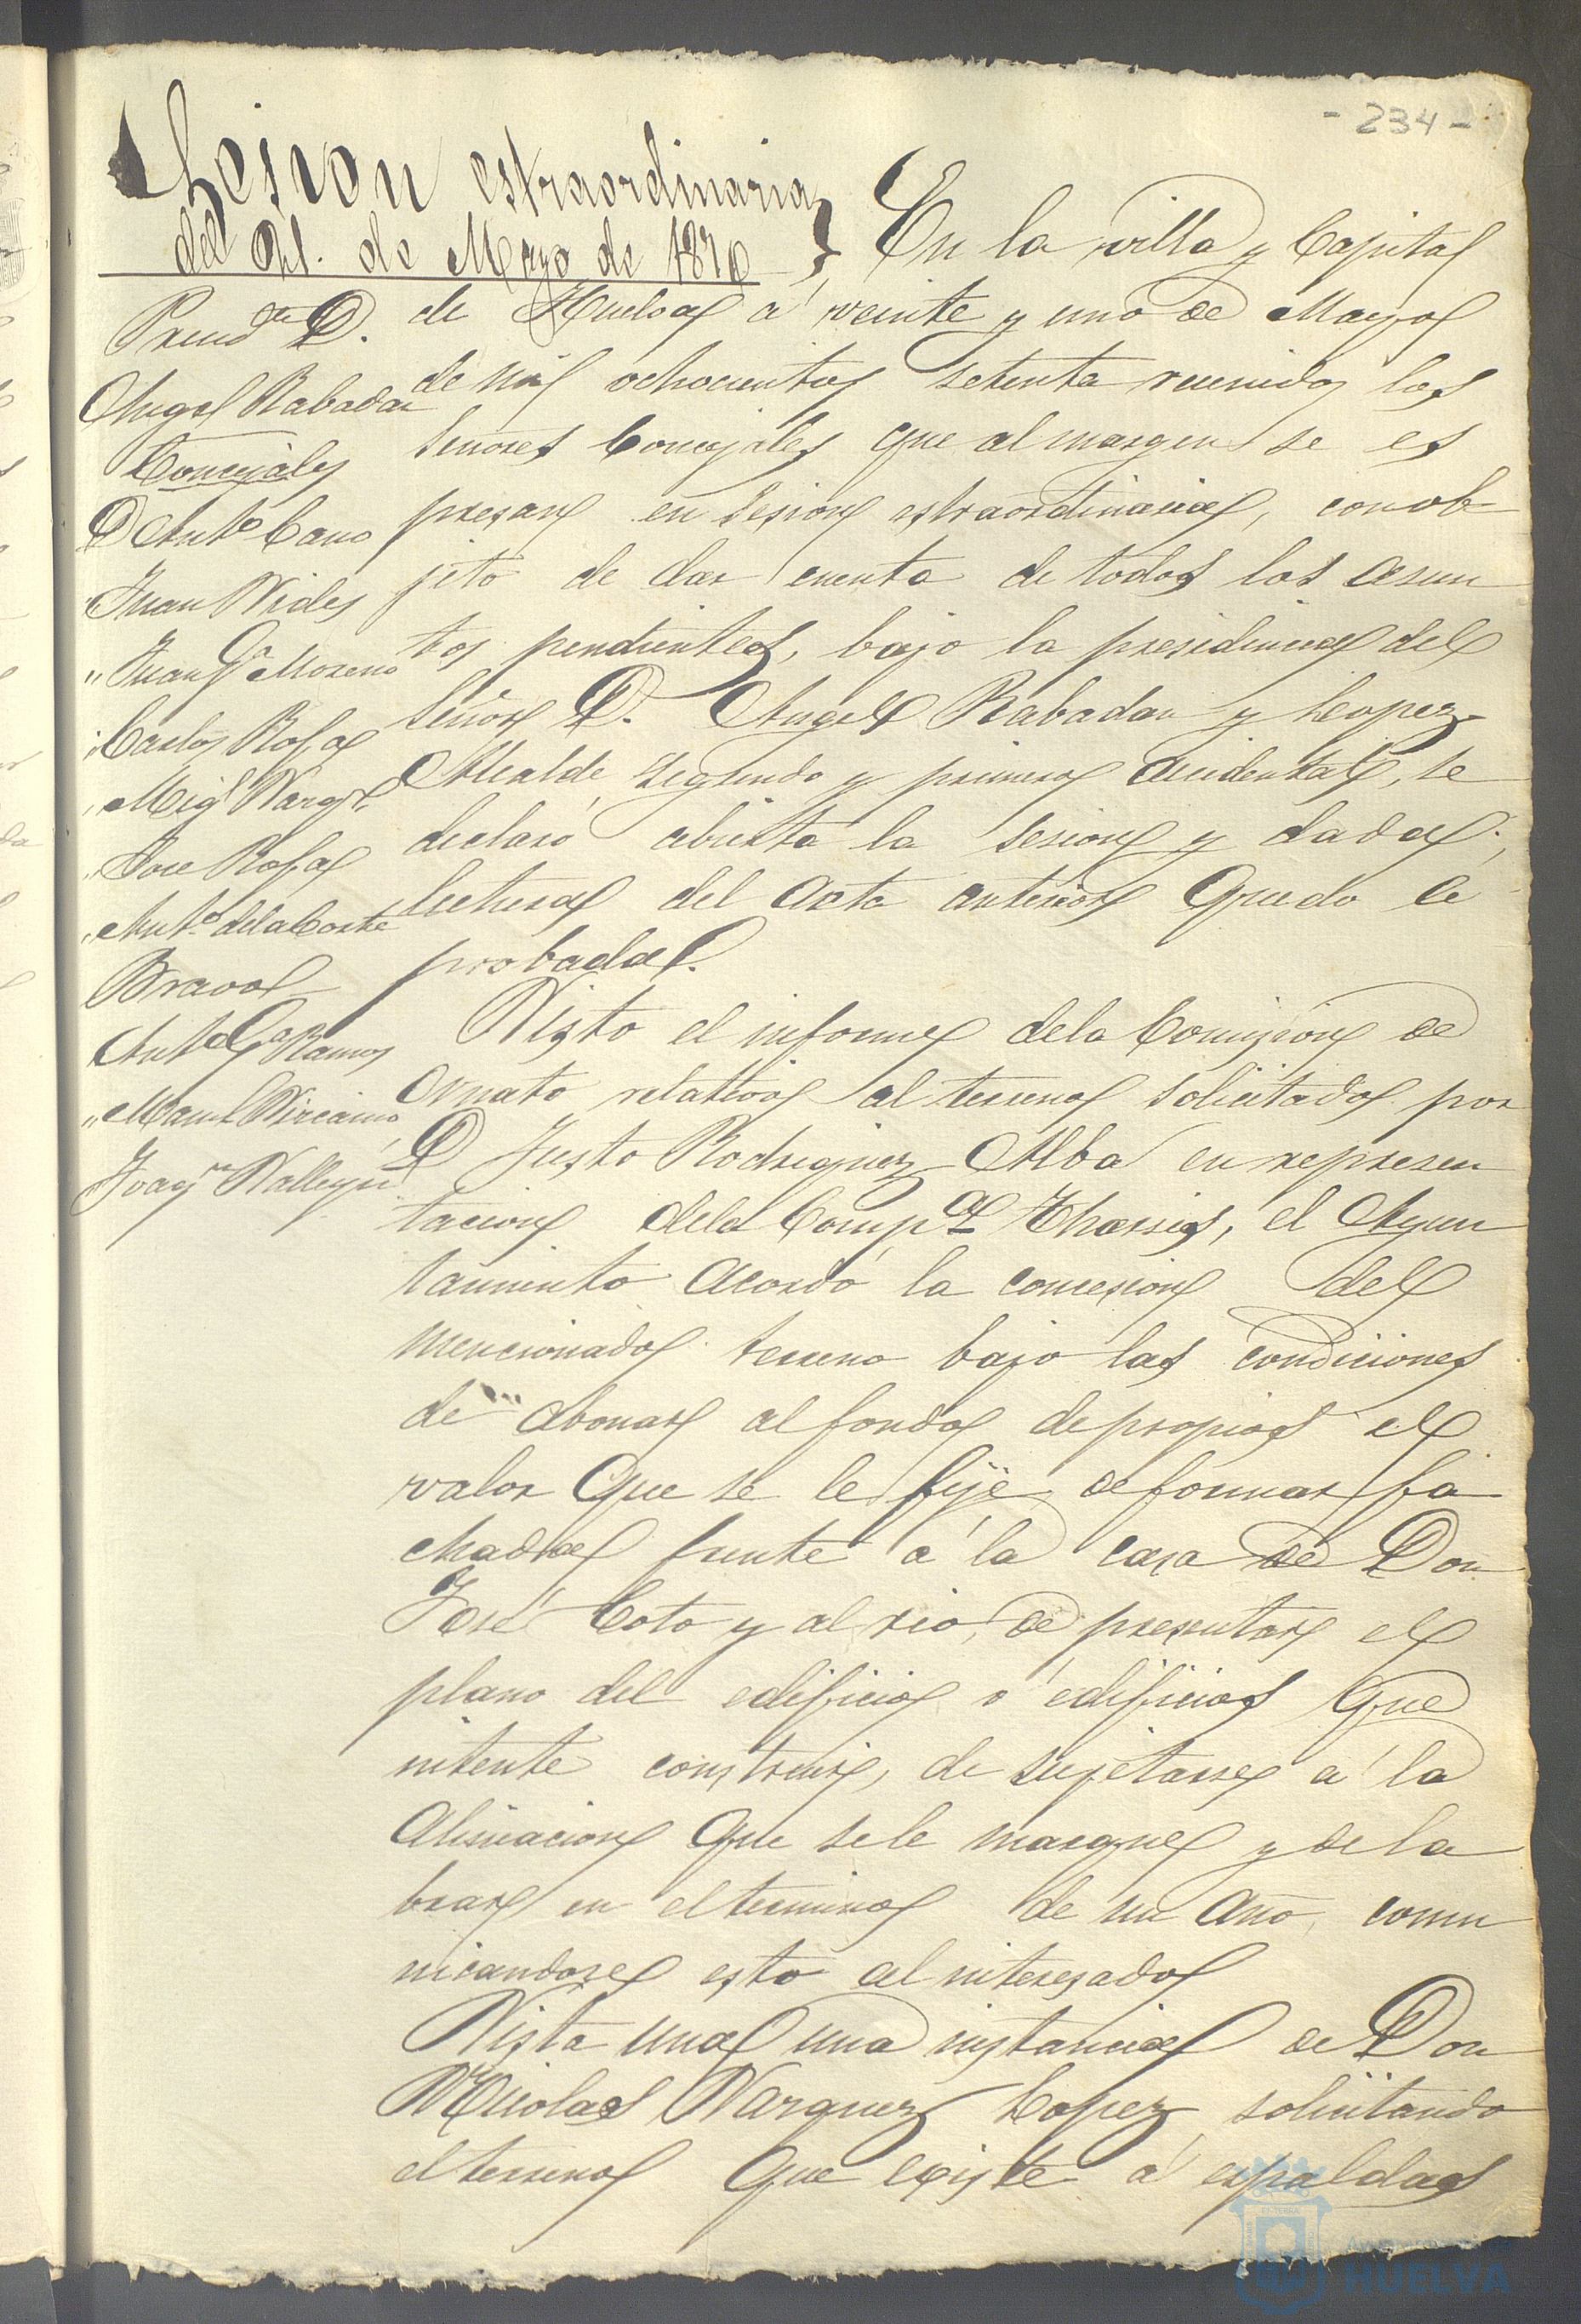 - 234 -
Sesion estraordinaria
del 21. de Mayo de 1870
Presid.te D.
Angel Rabadan
Concejales
D Ant.o Cano
" Juan Vides
" Juan G.a Moreno
" Carlos Rofa
" Mig.l Varg.s
" Jose Rofa
" Ant.o de la Corte
Bravo
Ant.o G.a Ramos
" Man.l Vizcaino
Joaq.n Vallejo
En la villa y Capital
de Huelva á veinte y uno de Mayo
de mil ochocientos setenta reunidos los
Señores Concejales que al margen se es
presan en sesion estraordinaria, con ob-
jeto de dar cuenta de todos los asun
tos pendientes, bajo la presidencia del
Señor D. Angel Rabadan y Lopez
Alcalde segundo y primero accidental, se
declaró abierta la sesion y dada
lectura del acta anterior quedo a
probada.
Visto el informe de la Comision de
Ornato relativo al terreno solicitado por
D Justo Rodriguez Alba en represen
tacion de la Comp.a Tharsis, el Ayun
tamiento acordó la concesion del
mencionado terreno bajo las condiciones
de abonar al fondo de propios el
valor que se le fije de formar fa
chada frente á la casa de Don
José Coto y al rio, de presentar el
plano del edificio ó edificios que
intente construir, de sujetarse á la
alineacion que se le marque y de la
brar en el termino de un año, comu
nicandose esto al interesado
Vista una una instancia de Don
Nicolas Vazquez Lopez solicitando
el terreno que existe á espaldas
HUELVA